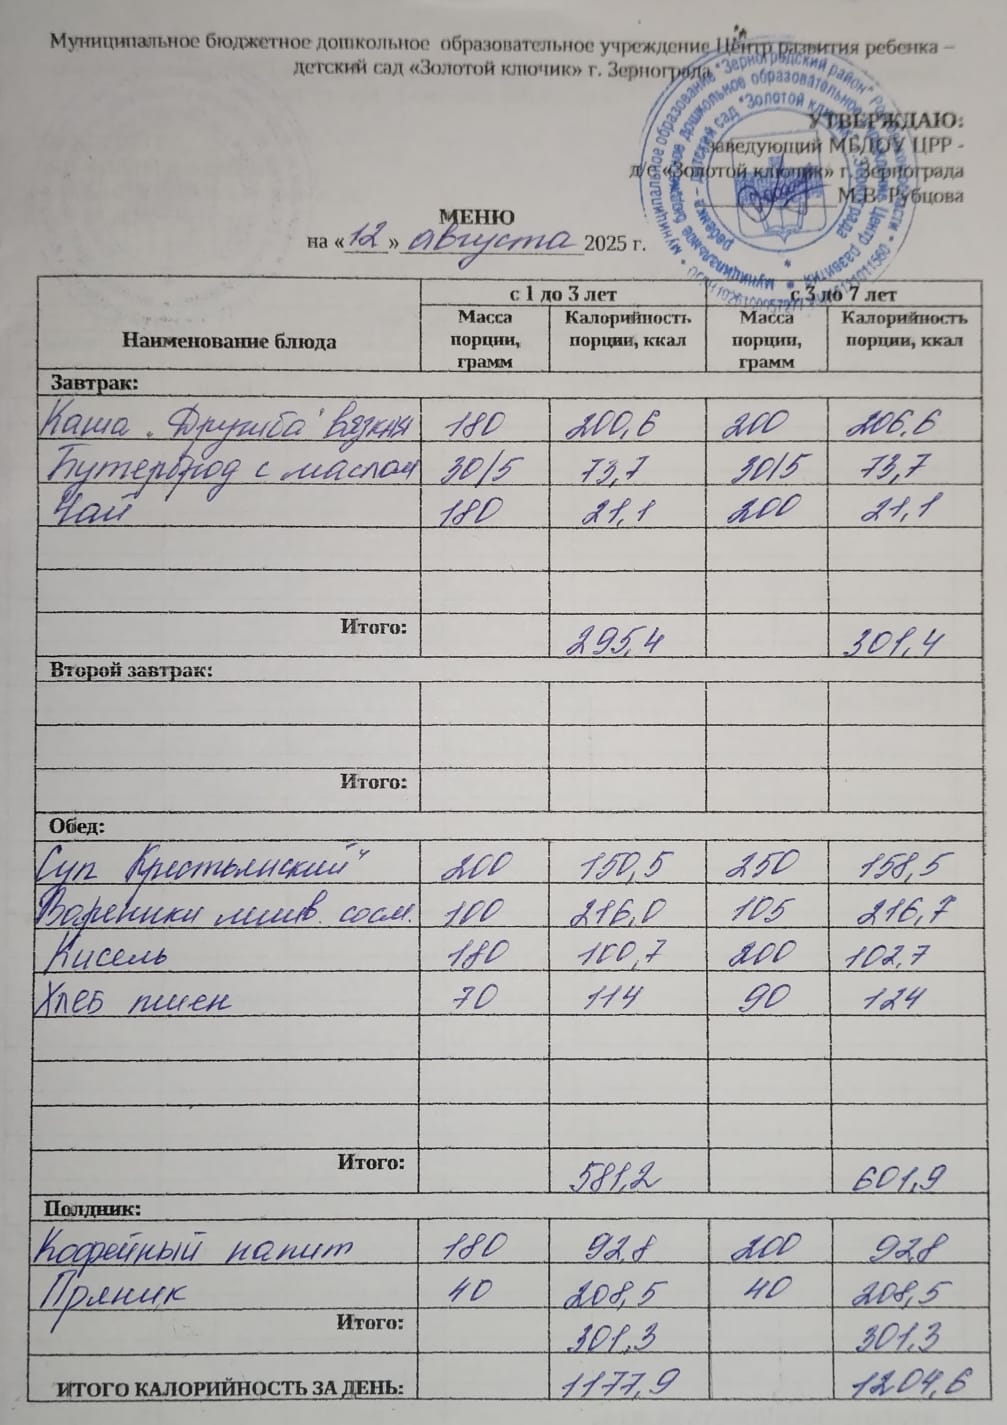 Муниципальное бюджетное дошкольное образовательное учреждение Центр развития ребенка –
детский сад «Золотой ключик» г. Зернограда
УТВЕРЖДАЮ:
заведующий МБДОУ ЦРР -
д/с «Золотой ключик» г. Зернограда
М.В. Рубцова
МЕНЮ
на «12» августа 2025 г.
Наименование блюда с 1 до 3 лет с 3 до 7 лет
Масса порции, грамм Калорийность порции, ккал Масса порции, грамм Калорийность порции, ккал
Завтрак:
Каша "Дружба" вязкая 180 200,6 200 206,6
Бутерброд с маслом 30/5 73,7 30/5 73,7
Чай 180 21,1 200 21,1
Итого: 295,4 301,4
Второй завтрак:
Итого:
Обед:
Суп Крестьянский" 200 150,5 250 158,5
Вареники линив. сосм. 100 216,0 105 216,7
Кисель 180 100,7 200 102,7
Хлеб пшен 70 114 90 124
Итого: 581,2 601,9
Полдник:
Кофейный напит 180 92,8 200 92,8
Пряник 40 208,5 40 208,5
Итого: 301,3 301,3
ИТОГО КАЛОРИЙНОСТЬ ЗА ДЕНЬ: 1177,9 1204,6